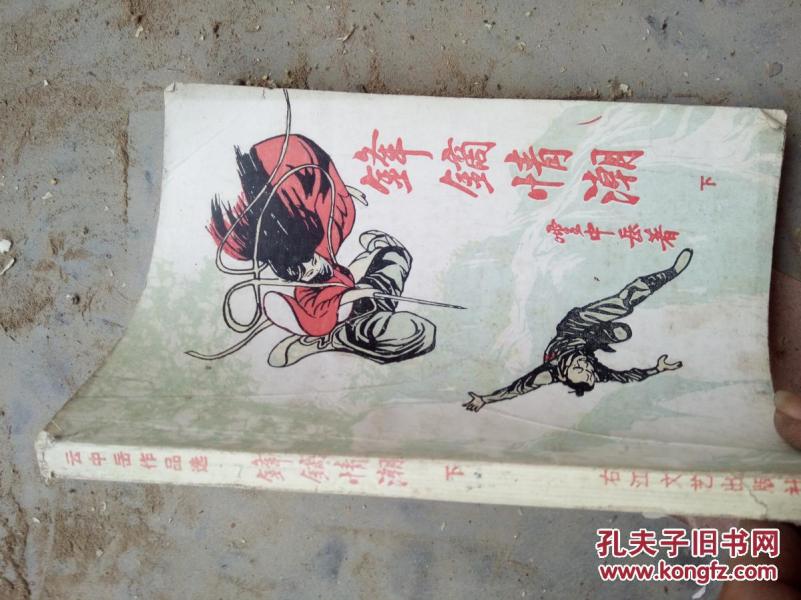 鋒鏑情潮
下
雲中岳著
云中岳作品选
鋒鏑情潮
下
右江文艺出版社
孔夫子旧书网
www.kongfz.com